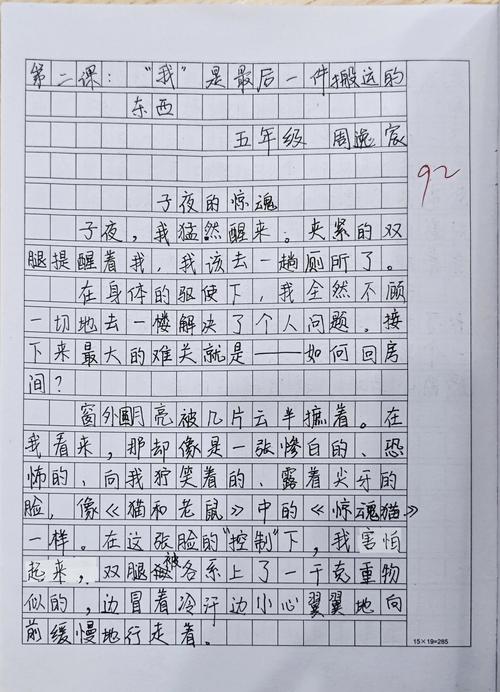 第二课:“我”是最后一件搬运的
东西
五年级 周逸宸
92
子夜的惊魂
子夜,我猛然醒来。夹紧的双
腿提醒着我,我该去一趟厕所了。
在身体的驱使下,我全然不顾
一切地去一楼解决了个人问题。接
下来最大的难关就是——如何回房
间?
窗外月亮被几片云半摭着。在
我看来,那却像是一张惨白的、恐
怖的、向我狞笑着的、露着尖牙的
脸,像《猫和老鼠》中的《惊魂猫》
一样。在这张脸的“控制”下,我害怕
起来,双腿被各系上了一千克重物
似的,边冒着冷汗边小心翼翼地向
前缓慢地行走着。
15×19=285